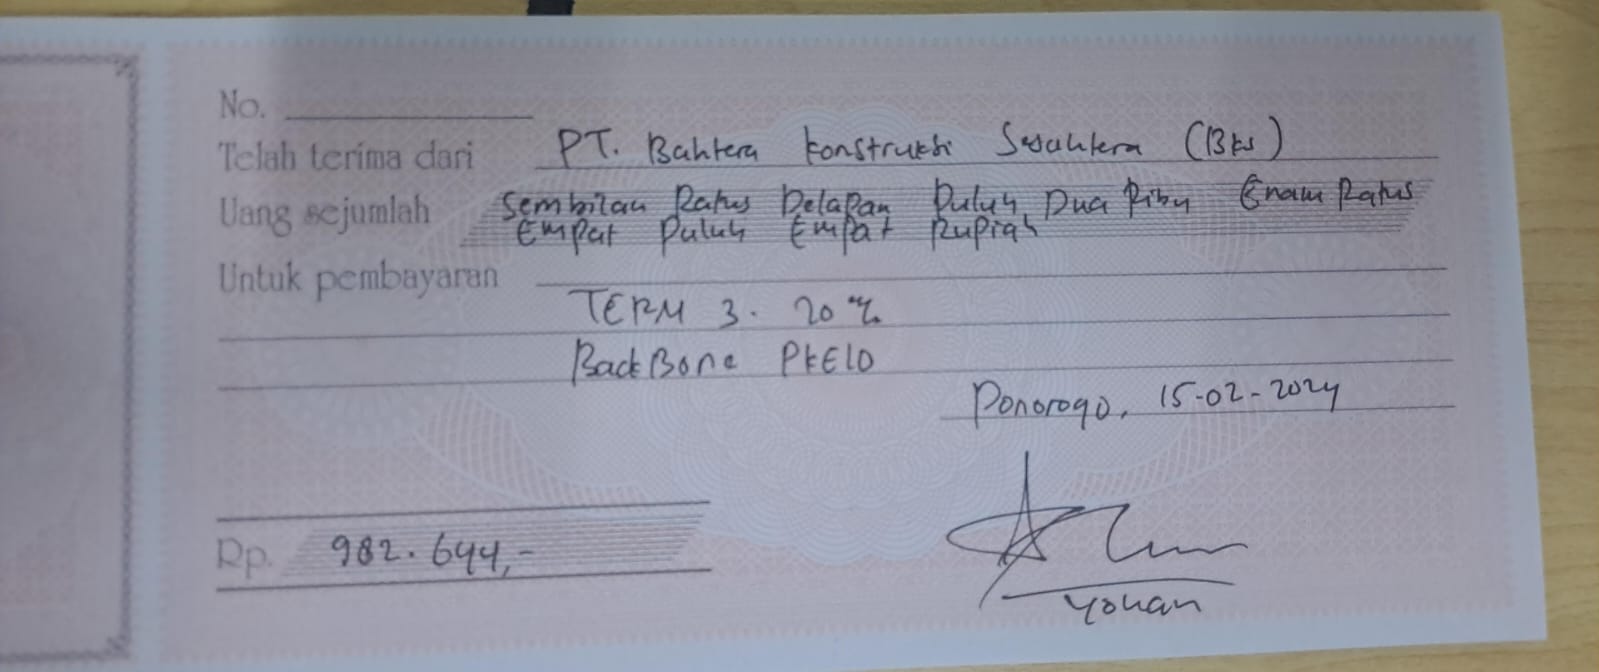 No.
Telah terima dari PT. Bahtera Konstruksi Sejahtera (Bks)
Uang sejumlah Sembilan Ratus Delapan Puluh Dua Ribu Enam Ratus
Empat Puluh Empat Rupiah
Untuk pembayaran
TERM 3. 20%
BackBone PKELO
Ponorogo, 15-02-2024
Rp. 982.644,-
Yohan